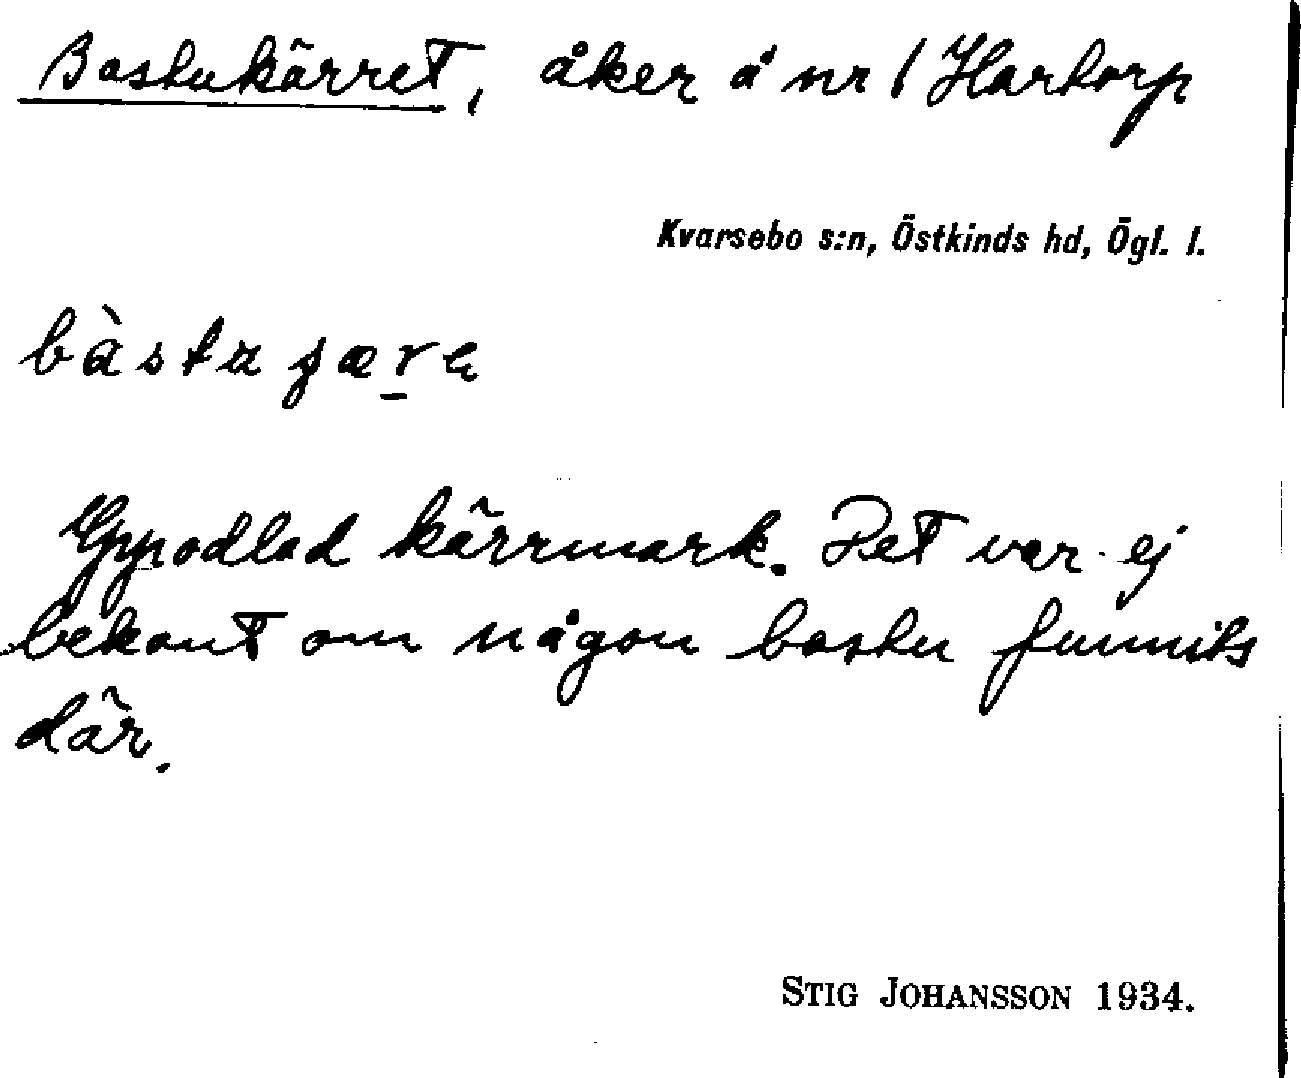 Bastukärret, åker å nr 1 Hartorp
Kvarsebo s:n, Östkinds hd, Ögl. l.
Uppodlad kärrmark. Det var ej
bekant om någon bastu funnits
där.
STIG JOHANSSON 1934.